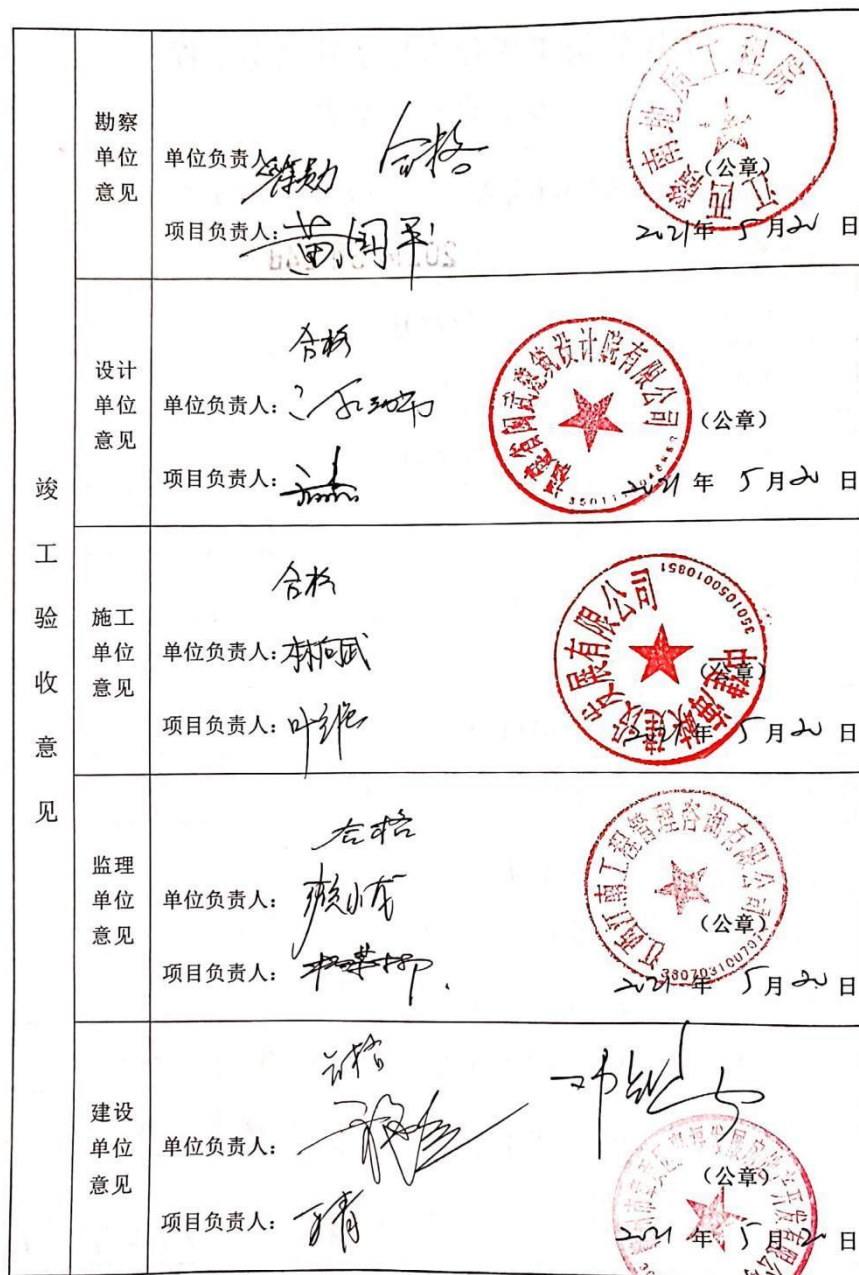 竣工验收意见
勘察单位意见
合格
单位负责人:
项目负责人: 黄国平
江西赣南地质工程院
(公章)
2021年 5月20 日
设计单位意见
合格
单位负责人:
项目负责人:
福建省闽武建筑设计院有限公司
(公章)
2021年 5月20 日
施工单位意见
合格
单位负责人: 林向武
项目负责人:
3501050010851
(公章)
2021年 5月20 日
监理单位意见
合格
单位负责人: 赖小茂
项目负责人:
江西川南工程管理咨询有限公司
(公章)
2021年 5月20 日
建设单位意见
合格
单位负责人:
项目负责人:
(公章)
2021年 5月20 日